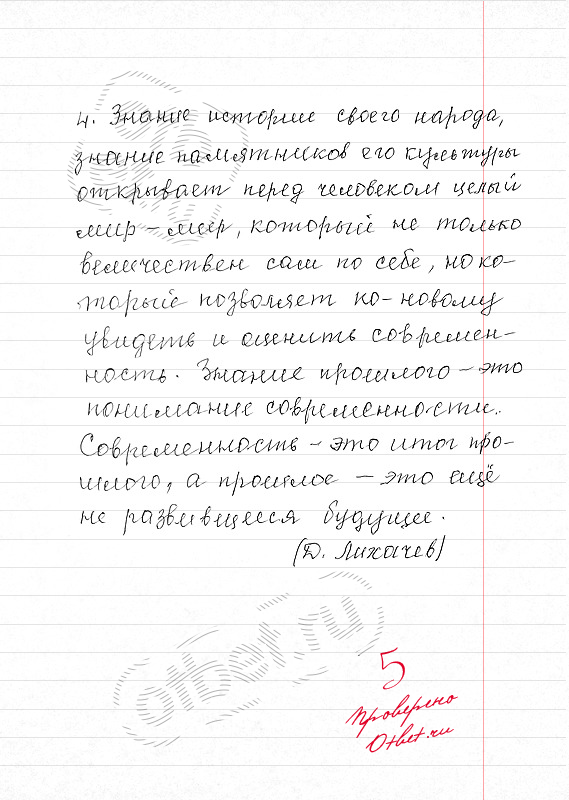 4. Знание истории своего народа,
знание памятников его культуры
открывает перед человеком целый
мир – мир, который не только
величествен сам по себе, но ко-
торый позволяет по-новому
увидеть и оценить современ-
ность. Знание прошлого – это
понимание современности.
Современность – это итог про-
шлого, а прошлое – это ещё
не развившееся будущее.
(Д. Лихачев)
otbet.ru
5
проверено
Otbet.ru